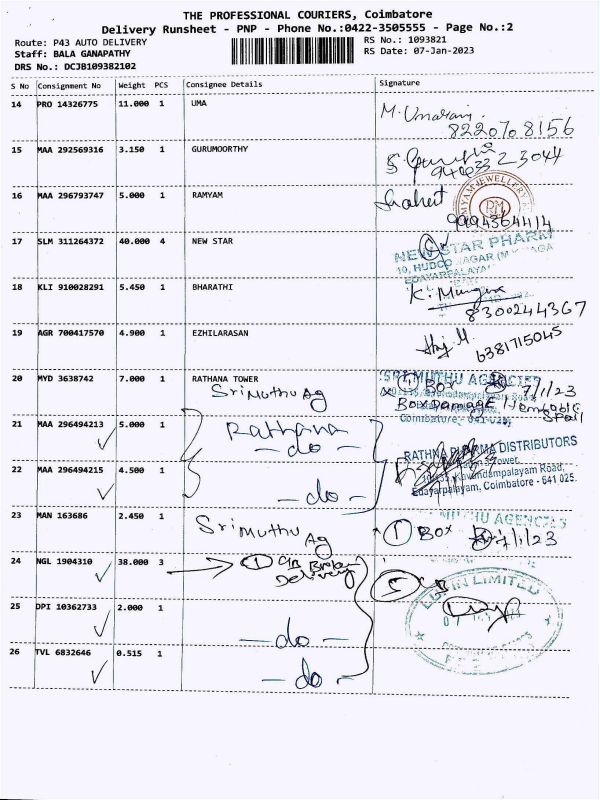 THE PROFESSIONAL COURIERS, Coimbatore
Delivery Runsheet - PNP - Phone No.:0422-3505555 - Page No.:2
Route: P43 AUTO DELIVERY
Staff: BALA GANAPATHY
DRS No.: DCJB109382102
RS No.: 1093821
RS Date: 07-Jan-2023
S No Consignment No Weight PCS Consignee Details Signature
14 PRO 14326775 11.000 1 UMA
8220708156
15 MAA 292569316 3.150 1 GURUMOORTHY
16 MAA 296793747 5.000 1 RAMYAM
RM
9994364414
17 SLM 311264372 40.000 4 NEW STAR
NEW STAR PHARM
10, HUDCO
18 KLI 910028291 5.450 1 BHARATHI
8300244367
19 AGR 700417570 4.900 1 EZHILARASAN
6381715045
20 MYD 3638742 7.000 1 RATHANA TOWER
Sri Muthu Ag
SRI MUTHU AGENCIES
1 Box 7/1/23
Box Damage
Coimbatore
21 MAA 296494213 5.000 1
Rathana
- do -
RATHNA PHARMA DISTRIBUTORS
Tower,
Kavundampalayam Road,
Edayarpalayam, Coimbatore - 641 025.
22 MAA 296494215 4.500 1
- do -
23 MAN 163686 2.450 1
Sri Muthu Ag
MUTHU AGENCIES
1 Box 7/1/23
24 NGL 1904310 38.000 3
1 C/B Broken
Delivery
5 C/B
LIMITED
25 DPI 10362733 2.000 1
- do -
26 TVL 6832646 0.515 1
- do -